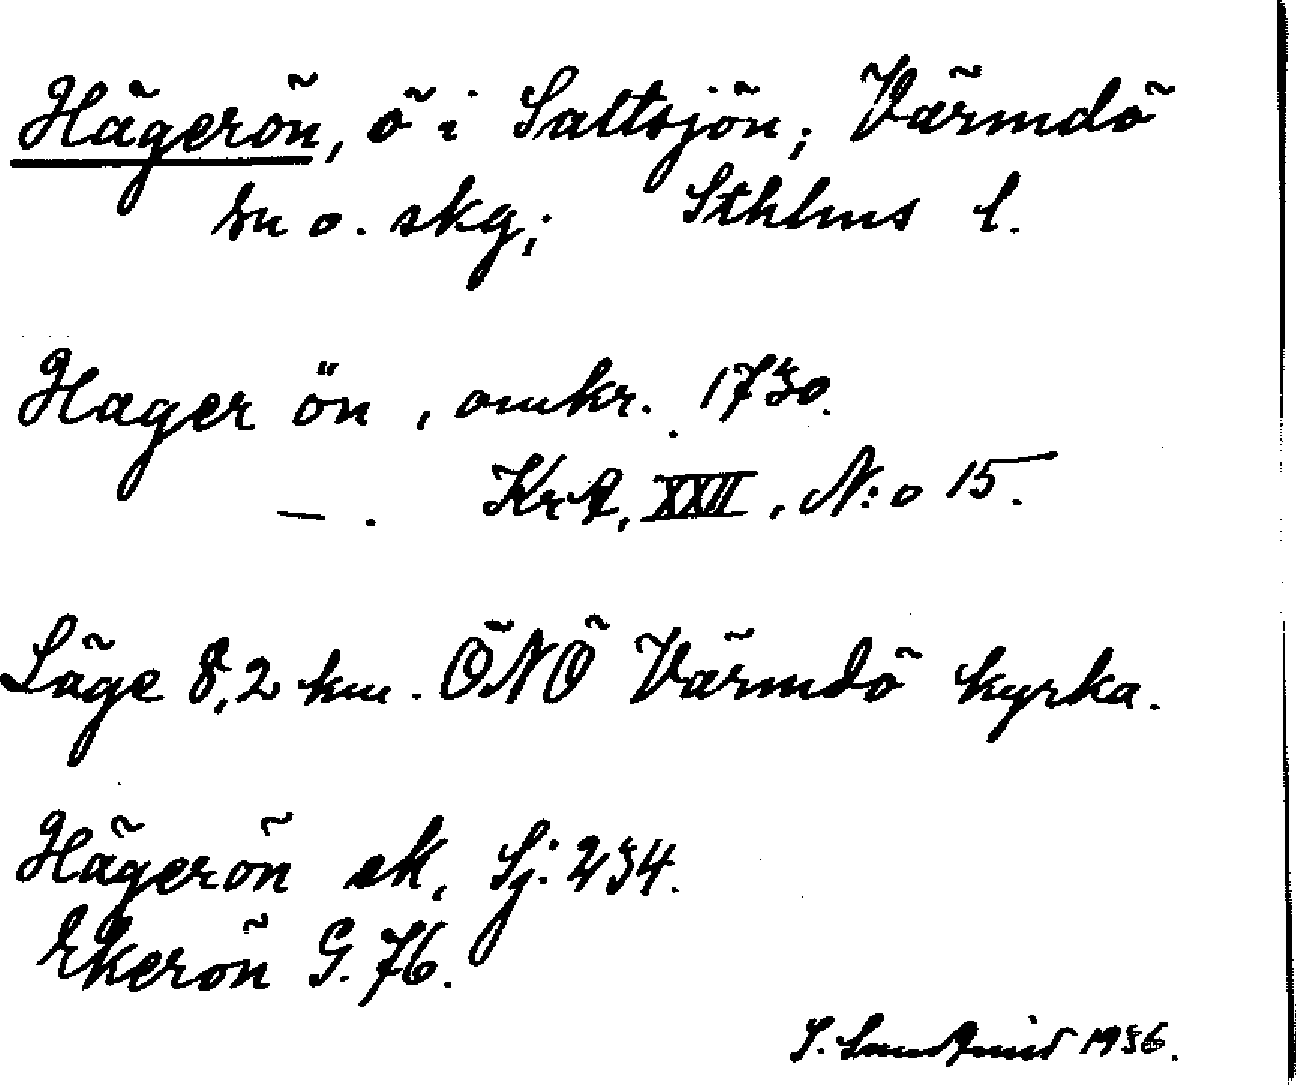 Hägerön, ö i Saltsjön; Värmdö
sn o. skg; Sthlms l.
Hager ön, omkr. 1730.
—. Krt, XXII, N:o 15.
Läge 8,2 km. ÖNÖ Värmdö kyrka.
Hägerön ek, Sj: 234.
Ekerön G. 76.
1936.